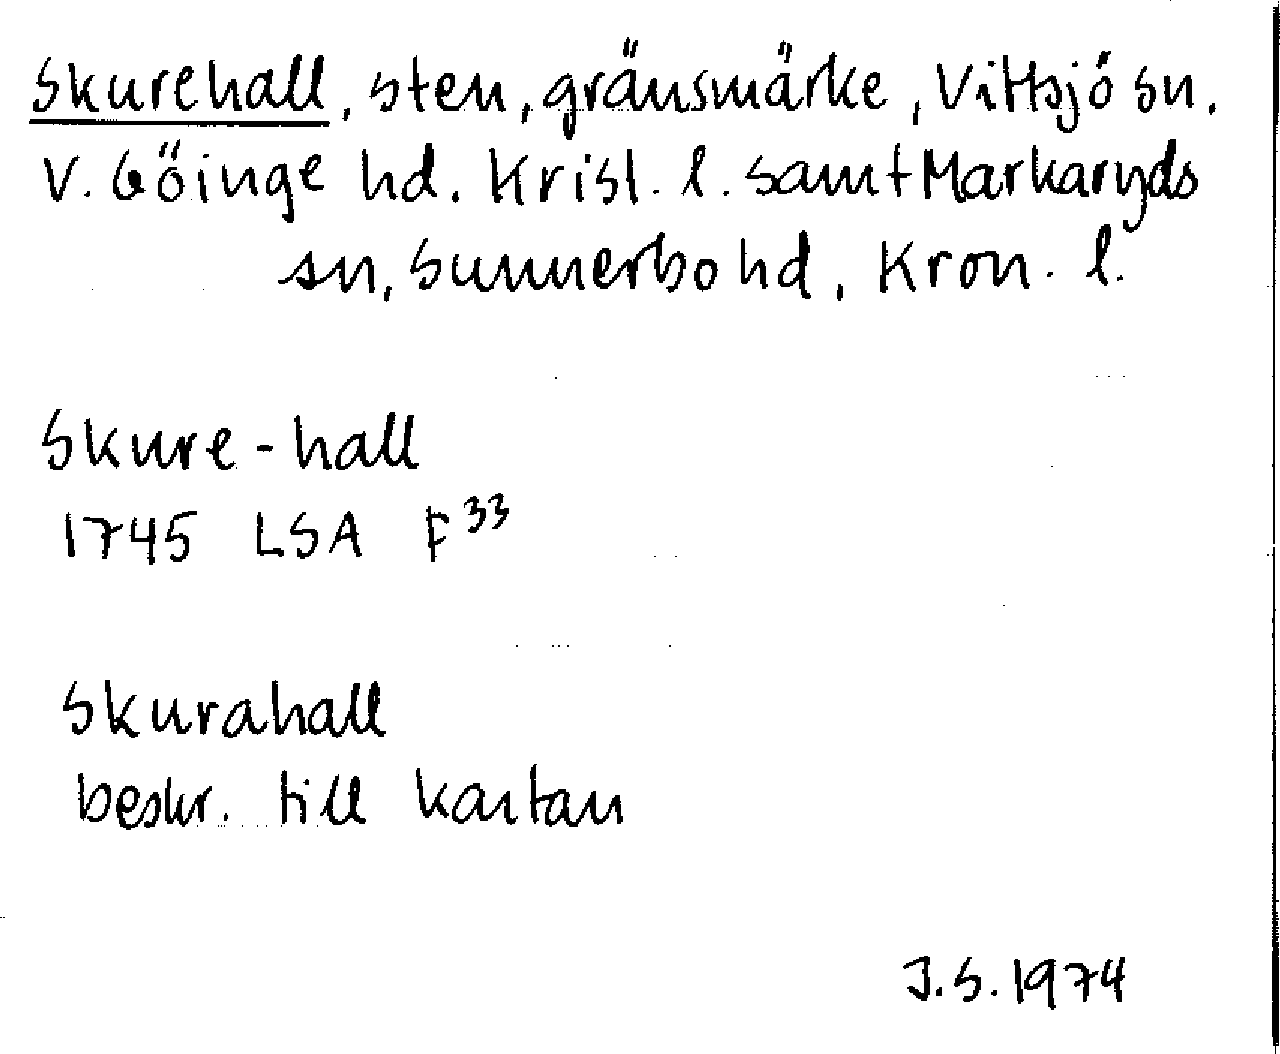 Skurehall, sten, gränsmärke, Vittsjö sn.
V. Göinge hd. Krist. l. samt Markaryds
sn, Sunnerbo hd, Kron. l.
Skure-hall
1745 LSA F33
Skurahall
beskr. till kartan
J.S. 1974